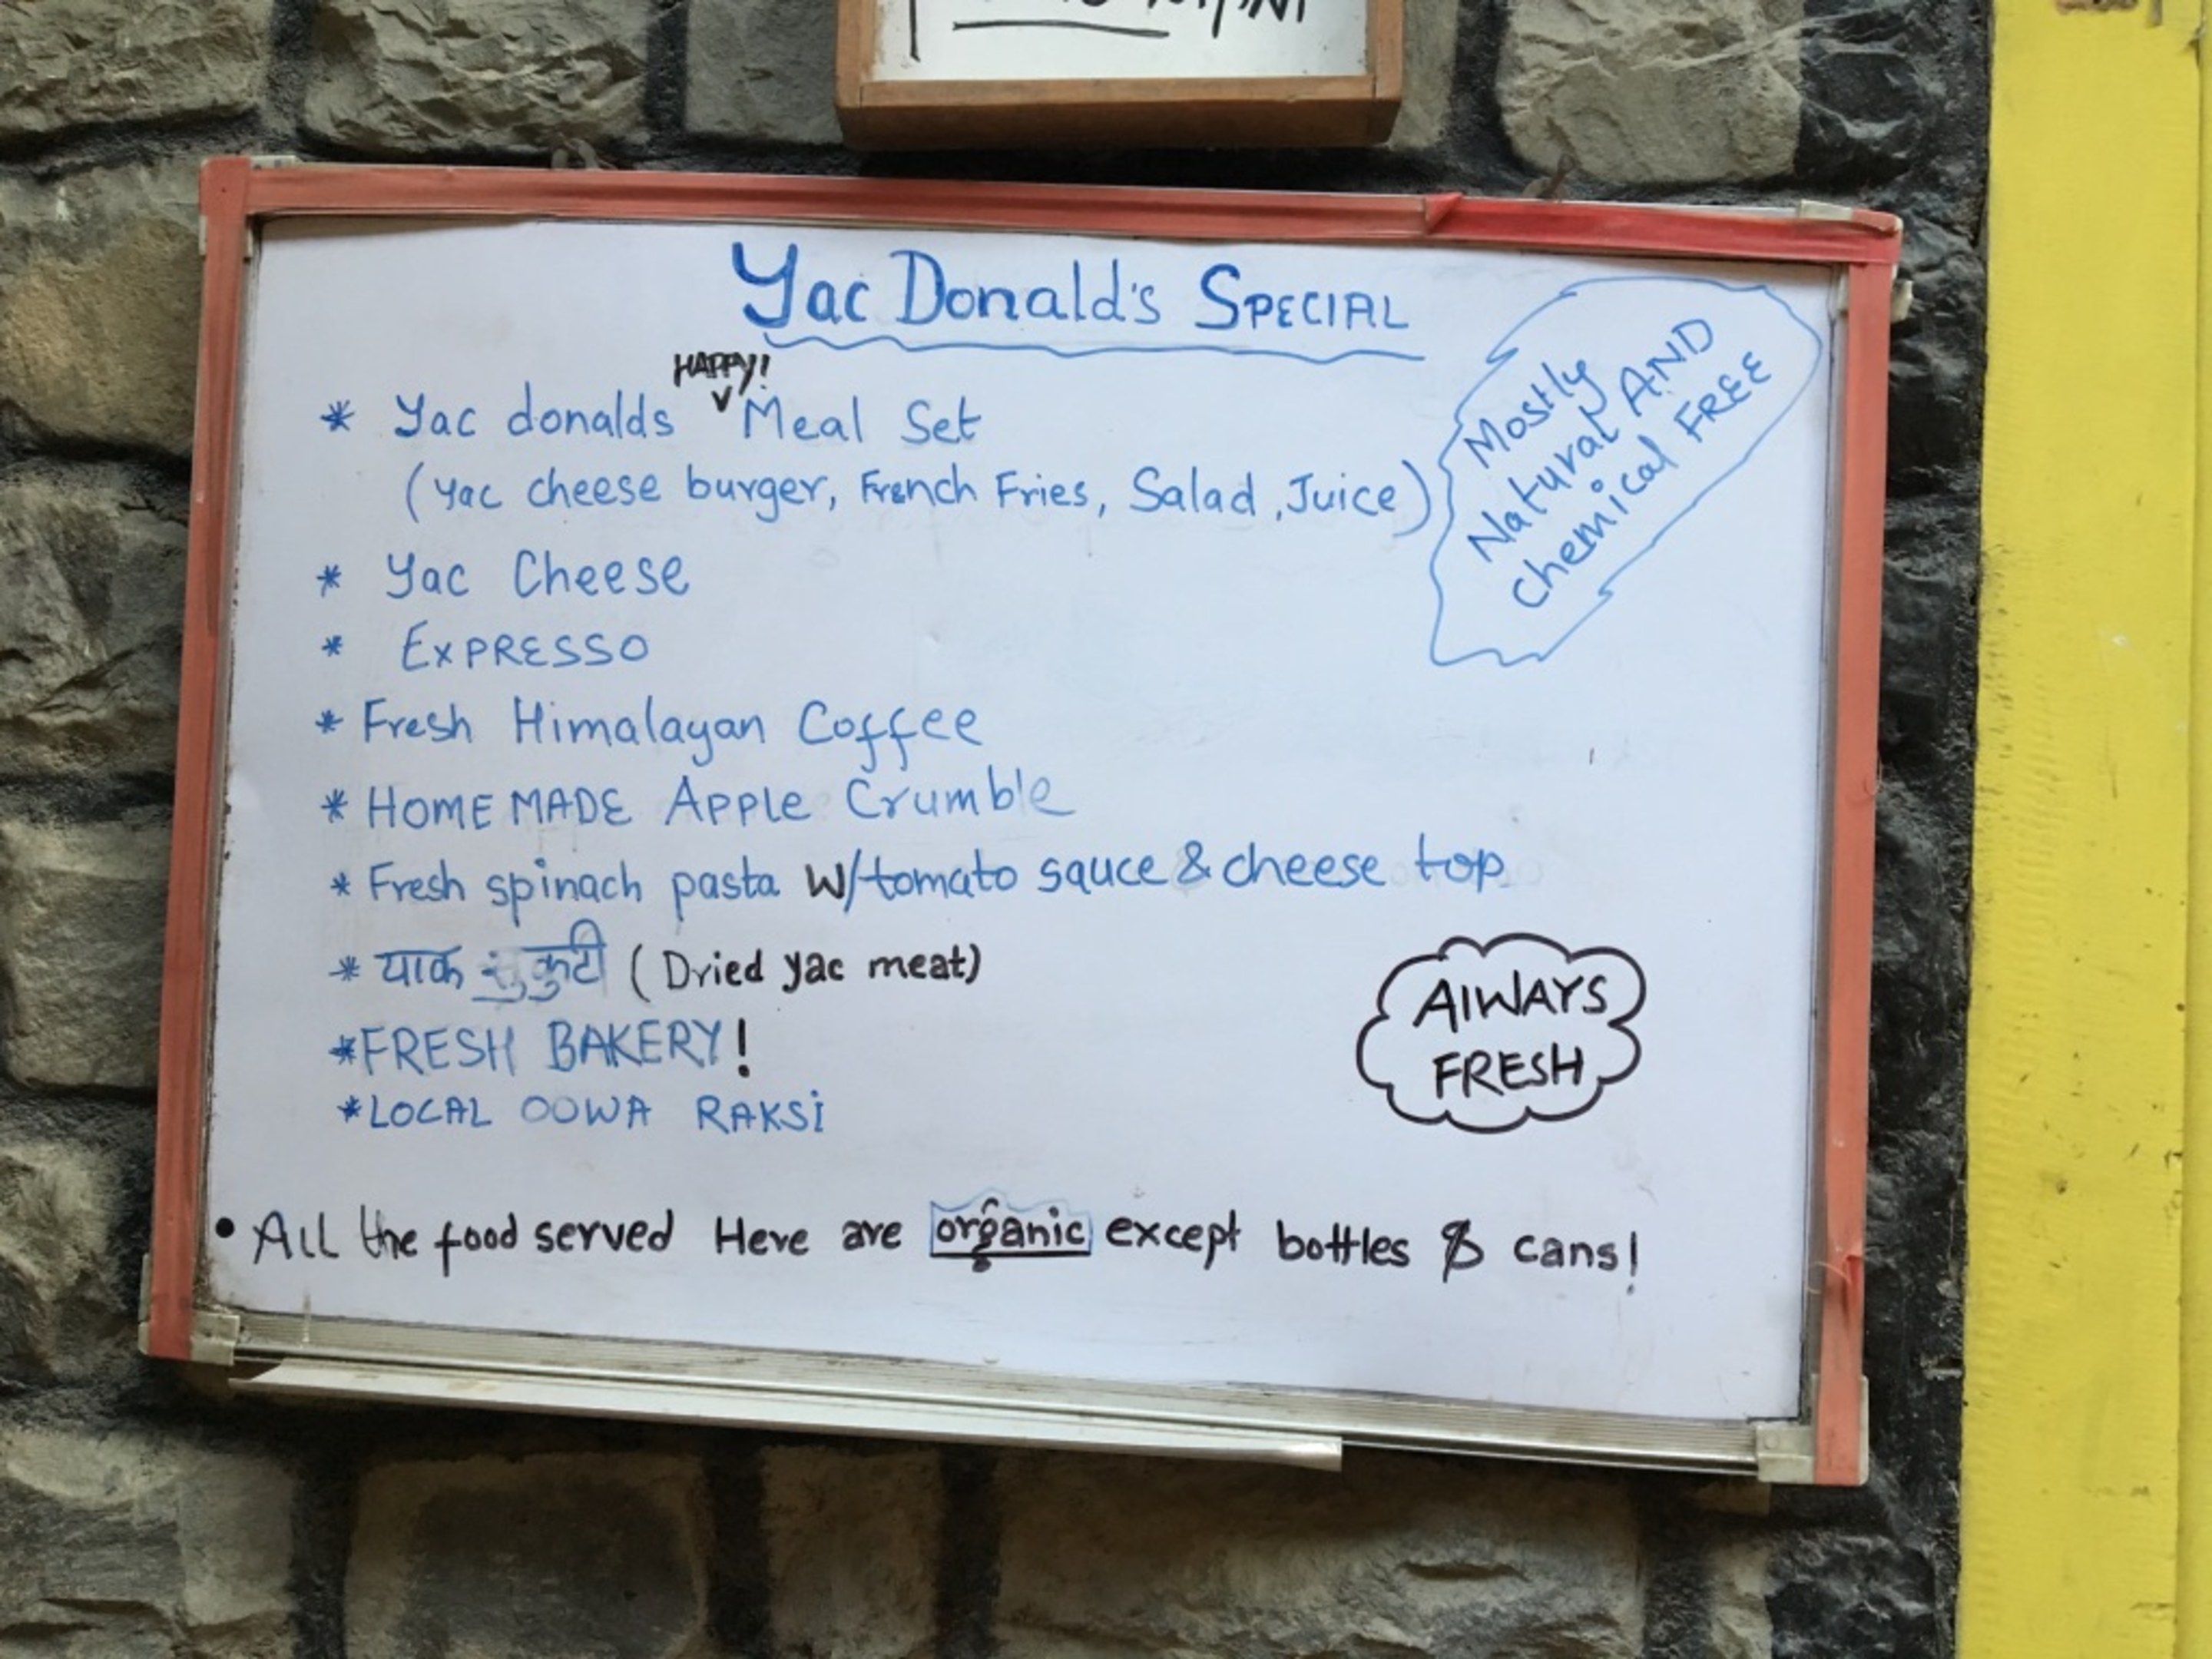 Yac Donald's SPECIAL
HAPPY!
* Yac donalds ∨ Meal Set
(Yac cheese burger, French Fries, Salad, Juice)
Mostly
Natural AND
Chemical FREE
* Yac Cheese
* ExPRESSO
* Fresh Himalayan Coffee
* HOME MADE Apple Crumble
* Fresh spinach pasta W/tomato sauce & cheese top
* याक सुकुटी (Dried yac meat)
*FRESH BAKERY!
*LOCAL OOWA RAKSi
AlWAYS
FRESH
• All the food served Here are organic except bottles & cans!